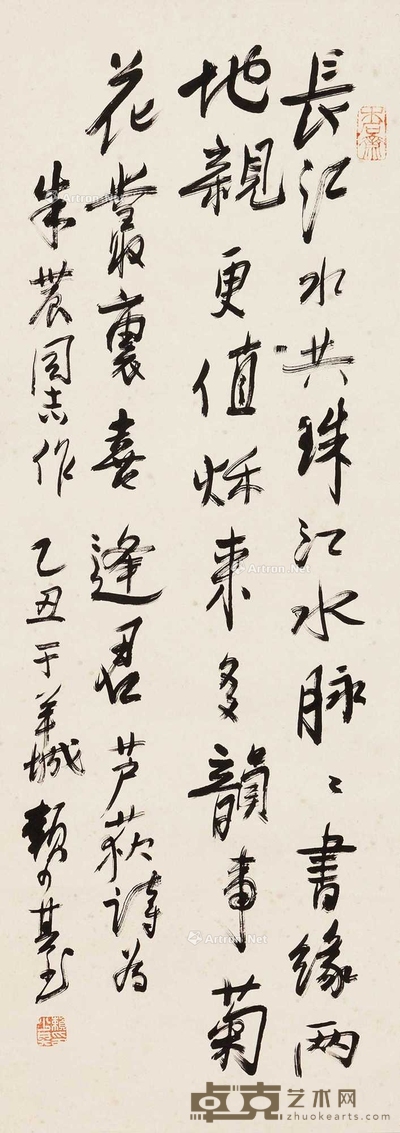 長江水共珠江水脉〻書緣两
地親更值秌来多韻事菊
花叢裏喜逢君芦荻詩为
朱農同志作 乙丑于羊城賴少其
Artron.Net
Artron.Net
Artron.Net
卓克艺术网
zhuokearts.com